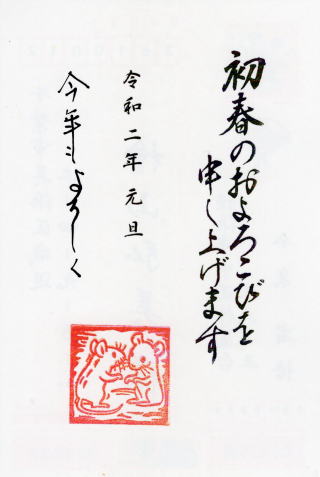 初春のおよろこびを
申し上げます
令和二年元旦
今年もよろしく